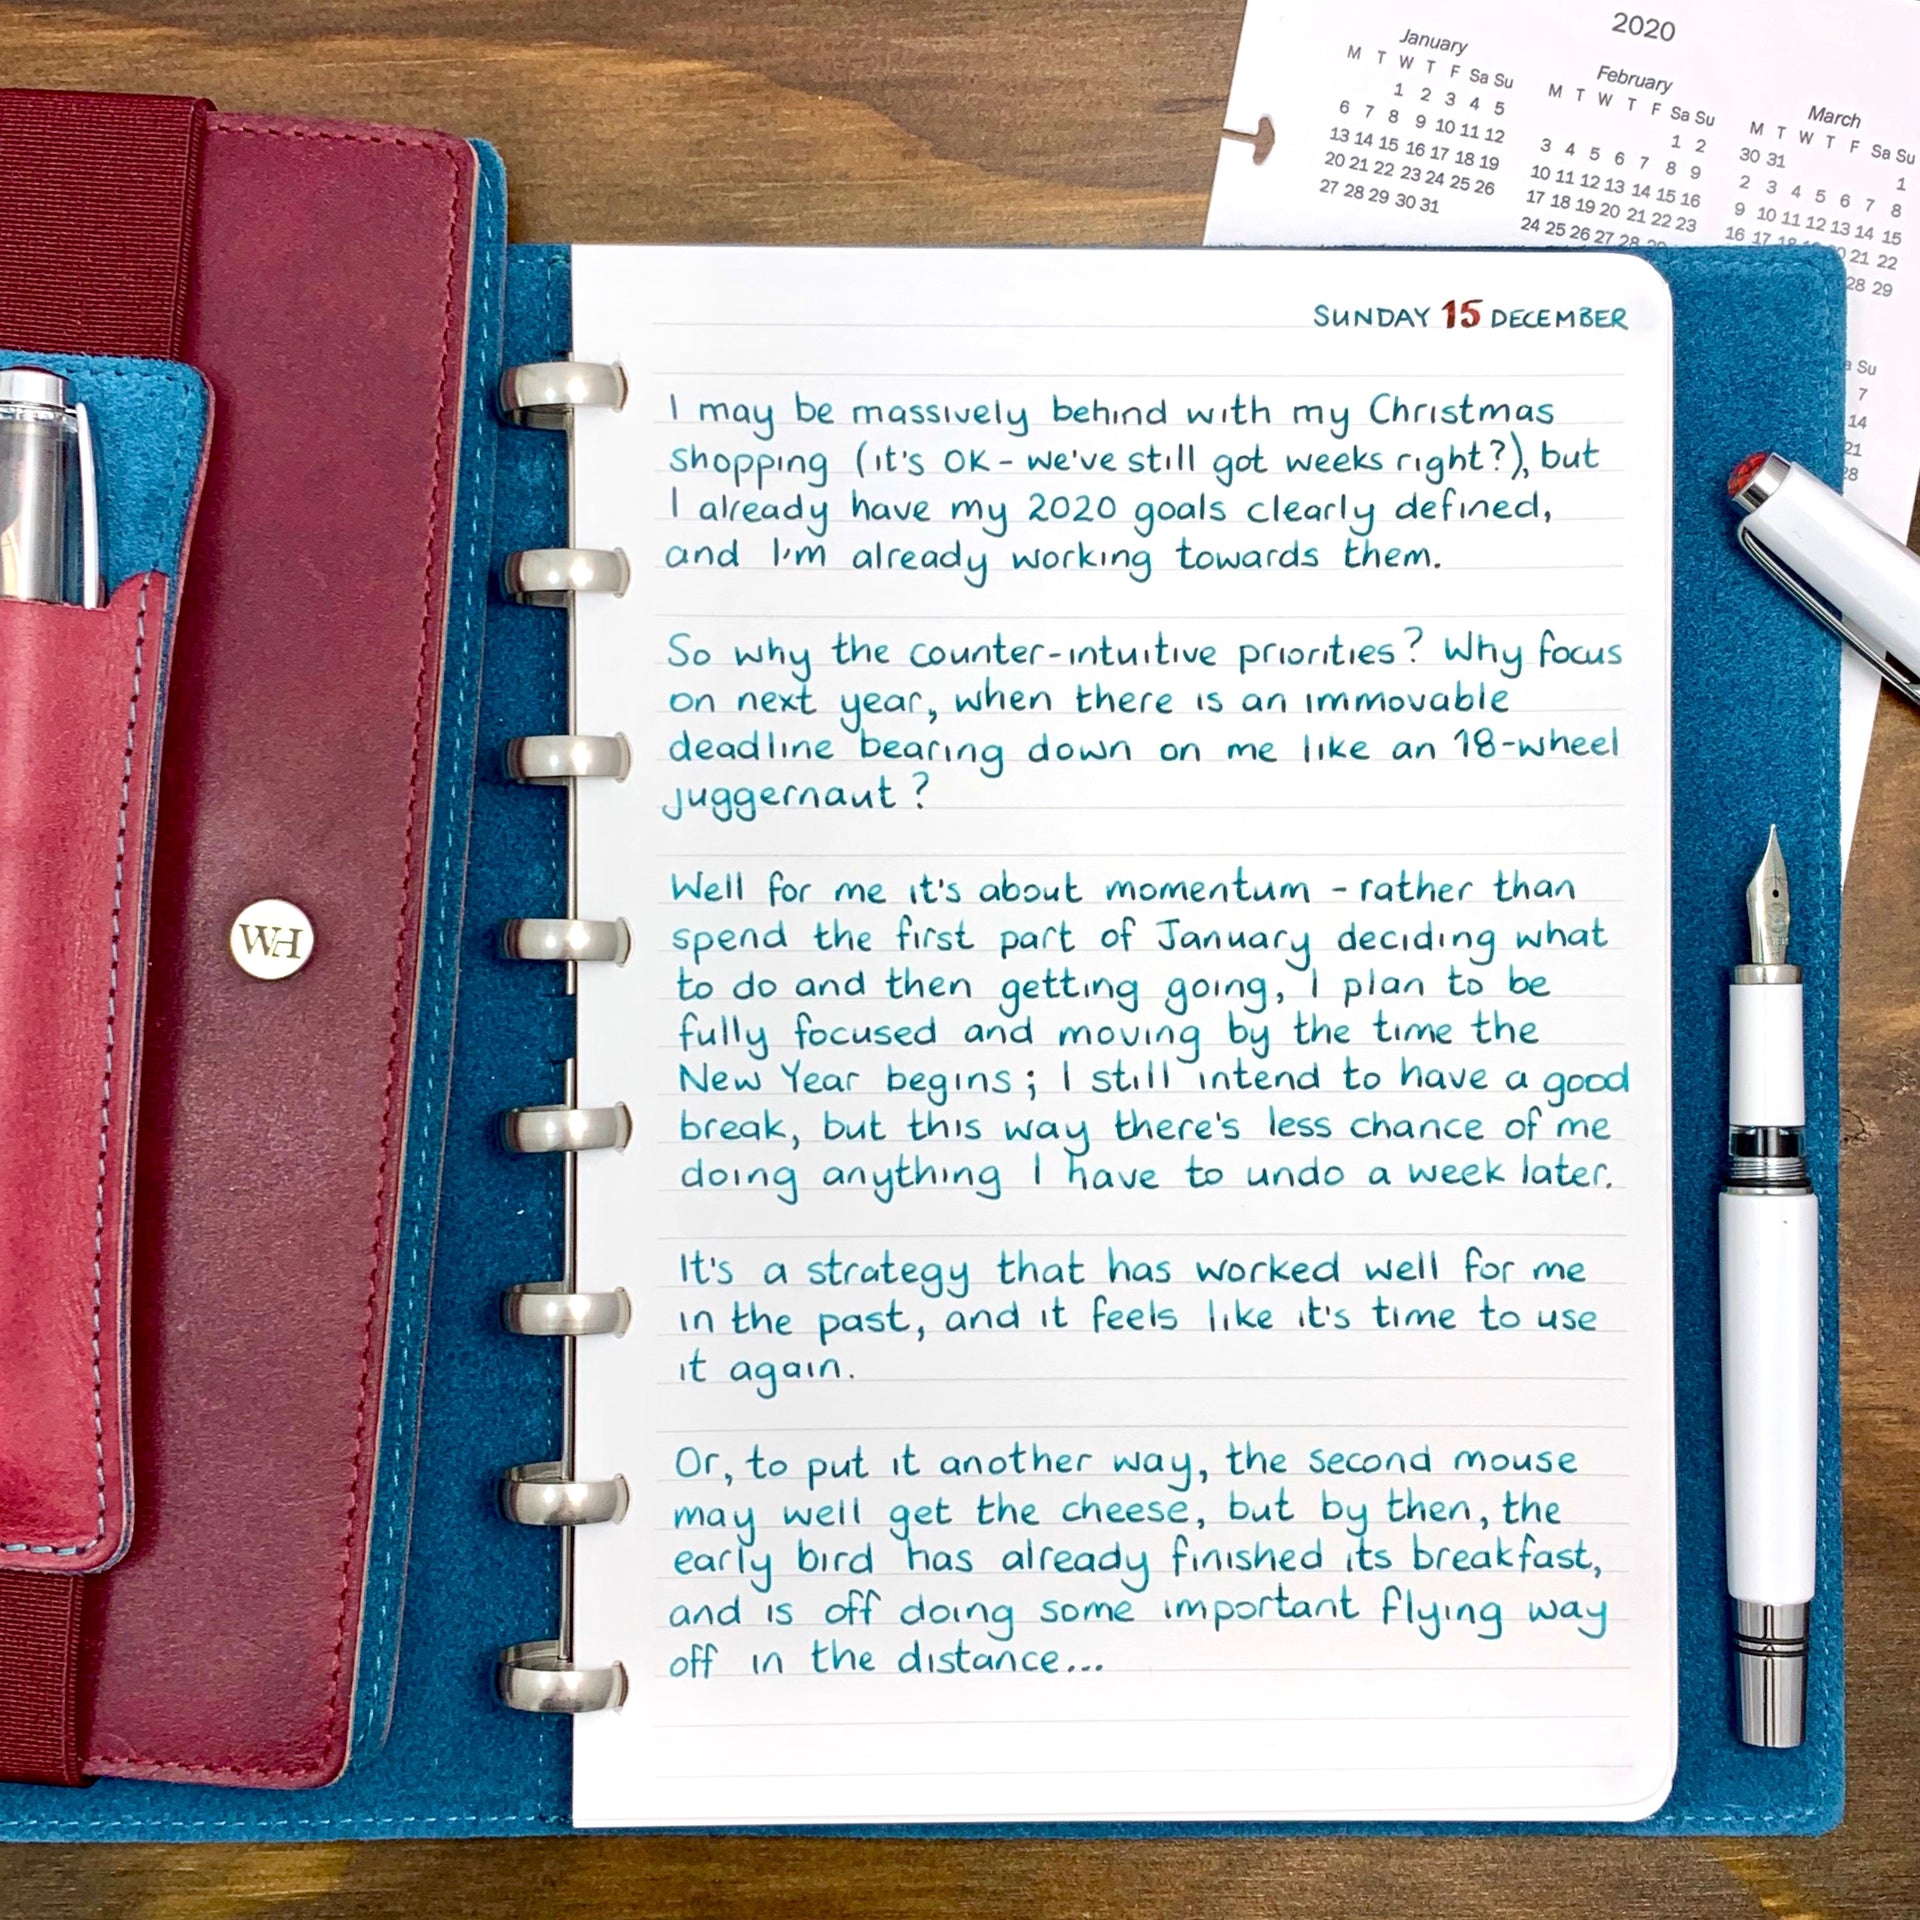 2020
January
M T W T F Sa Su
1 2 3 4 5
6 7 8 9 10 11 12
13 14 15 16 17 18 19
20 21 22 23 24 25 26
27 28 29 30 31
February
M T W T F Sa Su
1 2
3 4 5 6 7 8 9
10 11 12 13 14 15 16
17 18 19 20 21 22 23
24 25 26 27 28 29
March
M T W T F Sa Su
30 31
1
2 3 4 5 6 7 8
9 10 11 12 13 14 15
16 17 18 21 22
28 29
Su
7
14
21
28
SUNDAY 15 DECEMBER
I may be massively behind with my Christmas
shopping (it's OK - we've still got weeks right?), but
I already have my 2020 goals clearly defined,
and I'm already working towards them.
So why the counter-intuitive priorities? Why focus
on next year, when there is an immovable
deadline bearing down on me like an 18-wheel
juggernaut?
Well for me it's about momentum - rather than
spend the first part of January deciding what
to do and then getting going, I plan to be
fully focused and moving by the time the
New Year begins; I still intend to have a good
break, but this way there's less chance of me
doing anything I have to undo a week later.
It's a strategy that has worked well for me
in the past, and it feels like it's time to use
it again.
Or, to put it another way, the second mouse
may well get the cheese, but by then, the
early bird has already finished its breakfast,
and is off doing some important flying way
off in the distance...
WH